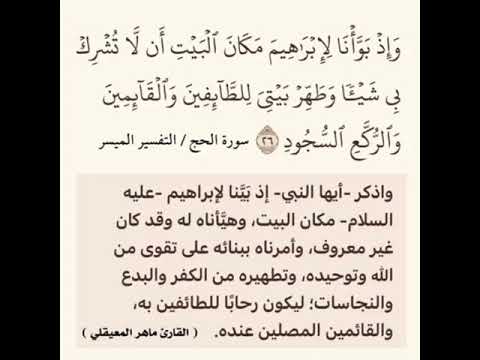 وَإِذۡ بَوَّأۡنَا لِإِبۡرَٰهِيمَ مَكَانَ ٱلۡبَيۡتِ أَن لَّا تُشۡرِكۡ
بِي شَيۡـٔٗا وَطَهِّرۡ بَيۡتِيَ لِلطَّآئِفِينَ وَٱلۡقَآئِمِينَ
وَٱلرُّكَّعِ ٱلسُّجُودِ ٢٦ سورة الحج / التفسير الميسر
واذكر -أيها النبي- إذ بَيَّنا لإبراهيم -عليه
السلام- مكان البيت، وهيَّأناه له وقد كان
غير معروف، وأمرناه ببنائه على تقوى من
الله وتوحيده، وتطهيره من الكفر والبدع
والنجاسات؛ ليكون رحابًا للطائفين به،
والقائمين المصلين عنده. ( القارئ ماهر المعيقلي )